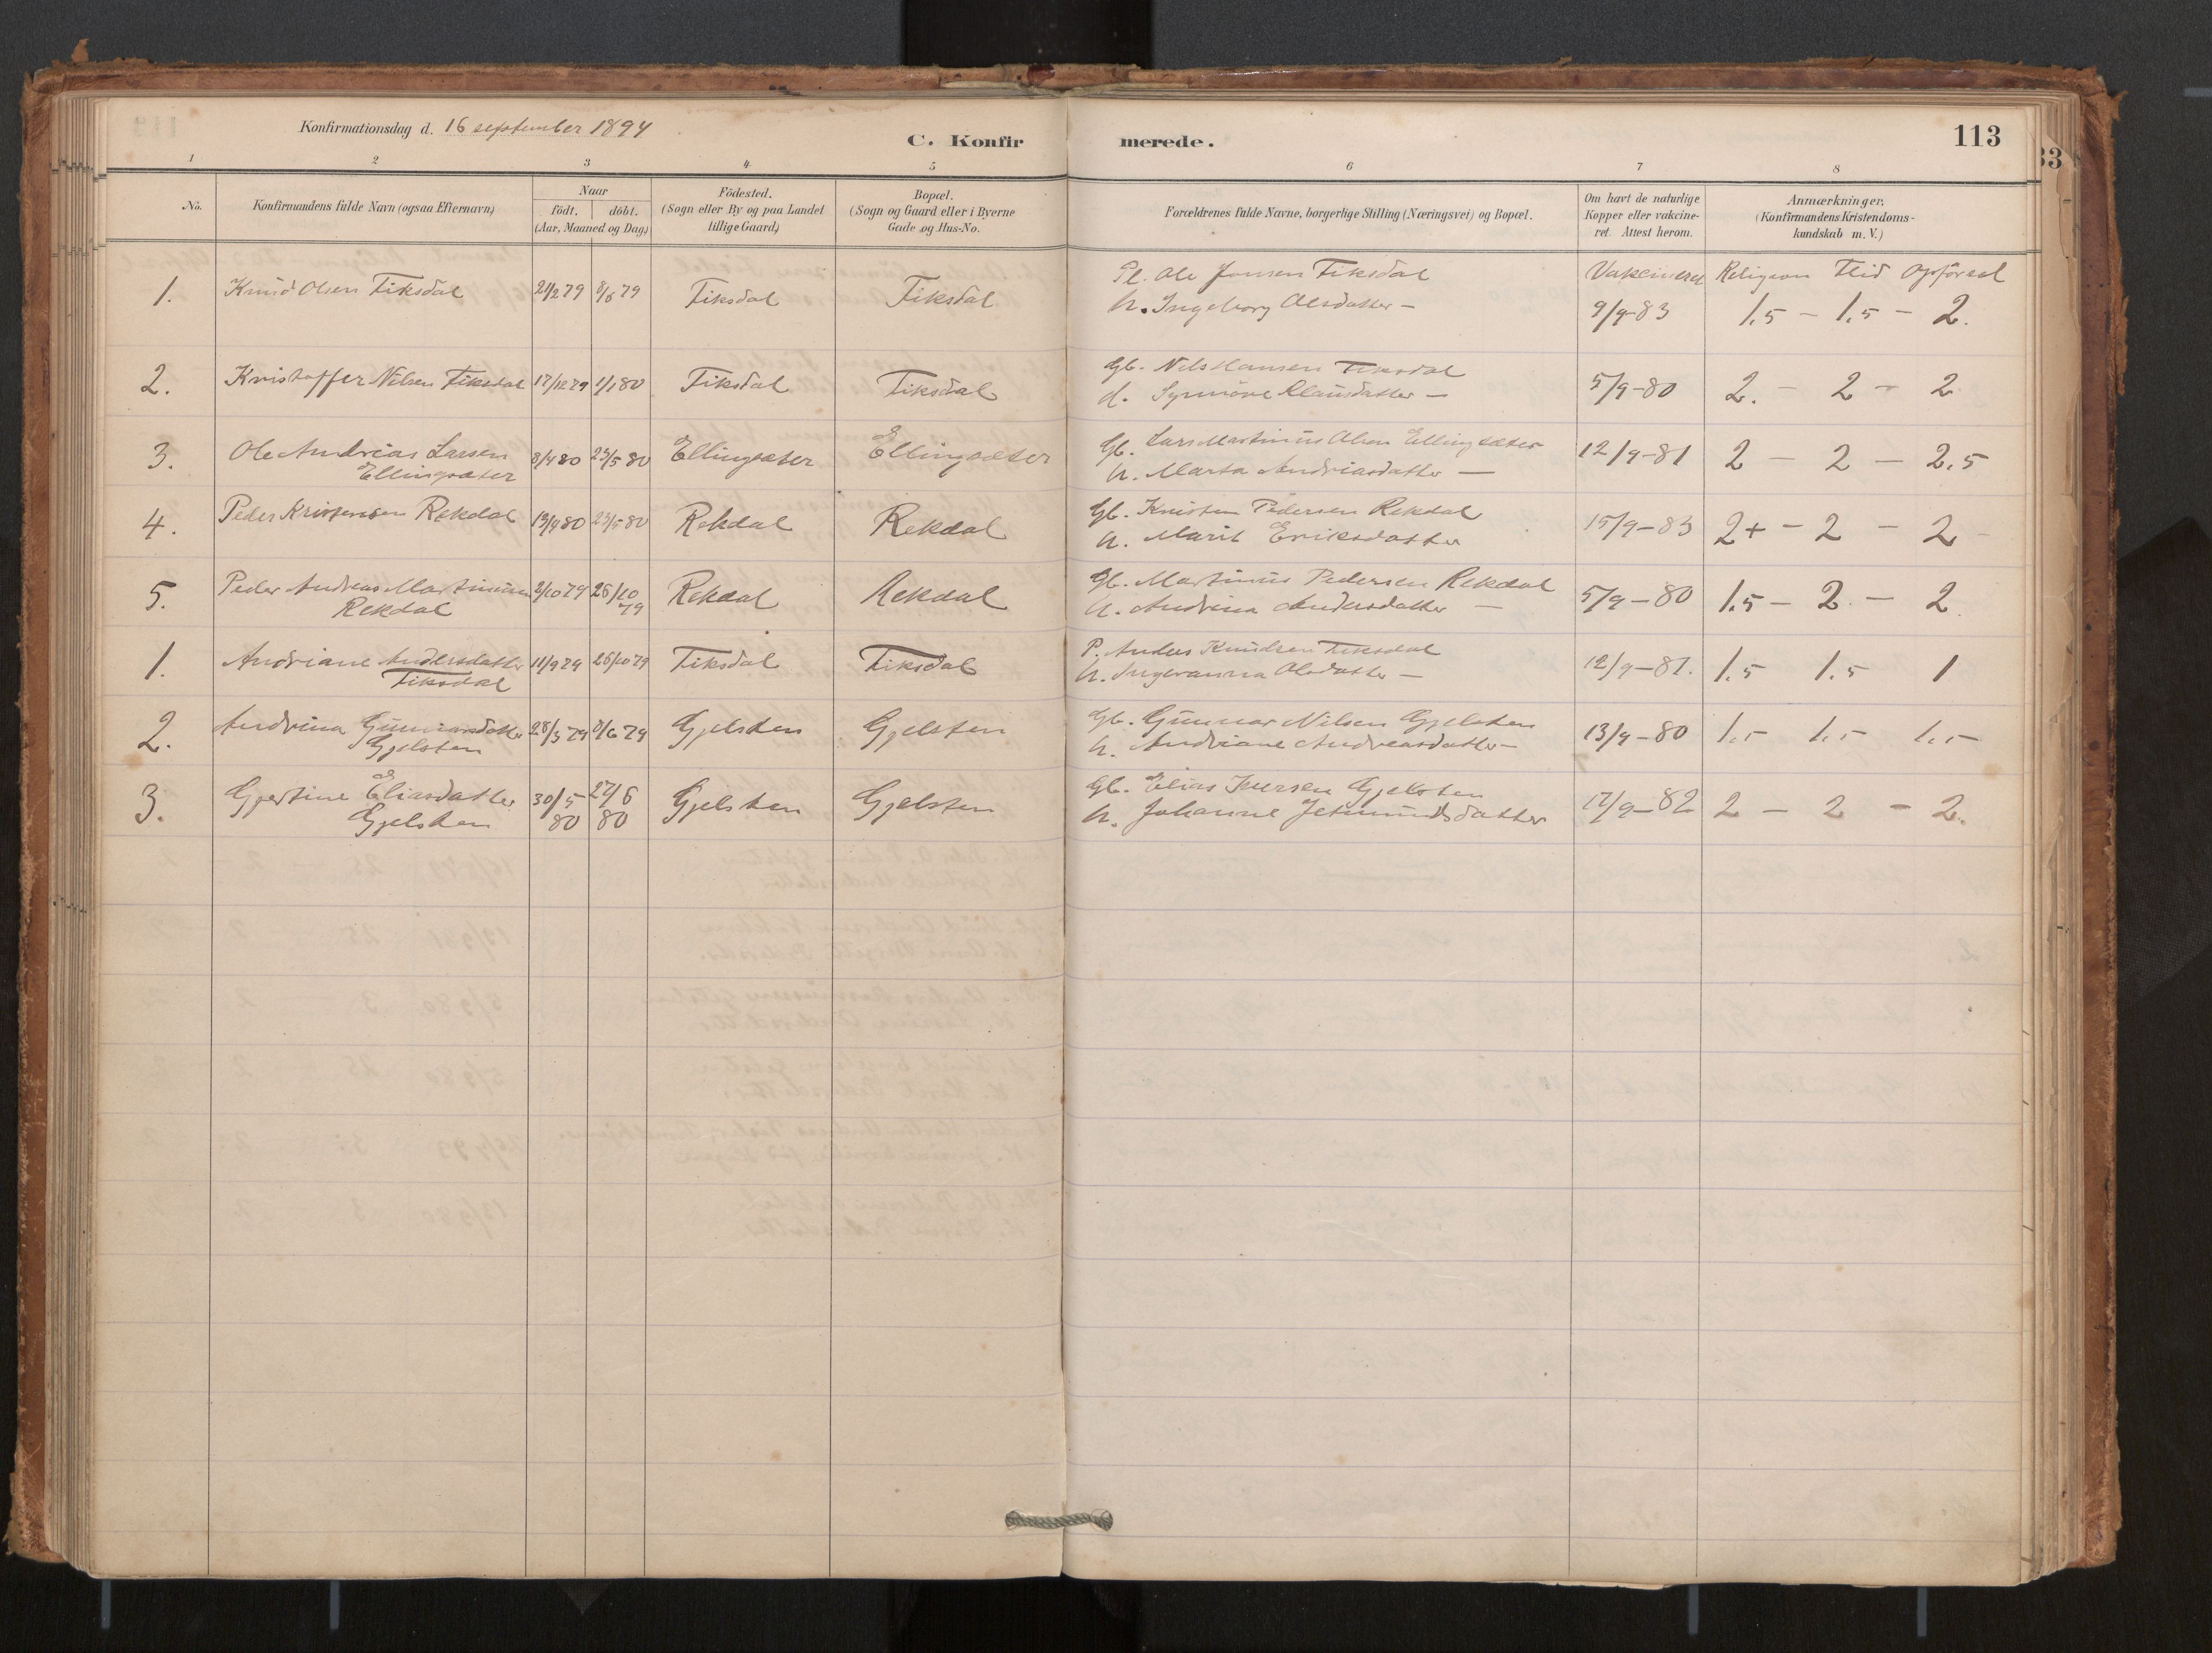 Konfirmationsdag d. 16 september 1894
C. Konfirmerede.
113
33
1 2 3 4 5 6 7 8
No.
Konfirmandens fulde Navn (ogsaa Efternavn)
Naar
födt. döbt.
(Aar, Maaned og Dag)
Födested.
(Sogn eller By og paa Landet
tillige Gaard)
Bopæl.
(Sogn og Gaard eller i Byerne
Gade og Hus-No.
Forældrenes fulde Navne, borgerlige Stilling (Næringsvei) og Bopæl.
Om havt de naturlige
Kopper eller vakcine-
ret. Attest herom.
Anmærkninger.
(Konfirmandens Kristendoms-
kundskab m. V.)
Vakcineret Religion Flid Opförsel
1. Knud Olsen Tiksdal 21/2 79 8/6 79 Tiksdal Tiksdal
Pl. Ole Jonsen Tiksdal
h. Ingeborg Olsdatter –
9/9-83 1,5 – 1,5 – 2.
2. Kristoffer Nilsen Tiksdal 17/12 79 1/1 80 Tiksdal Tiksdal
Gb. Nils Hansen Tiksdal
h. Synnöve Klausdatter –
5/9-80 2. – 2 – 2
3. Ole Andrias Larsen
Ellingsæter
8/4 80 23/5 80 Ellingsæter Ellingsæter
Gb. Lars Martinus Olsen Ellingsæter
h. Marta Andriasdatter –
12/9-81 2 – 2 – 2,5
4. Peder Kristensen Rekdal 19/4 80 23/5 80 Rekdal Rekdal
Gb. Kristen Pedersen Rekdal
h. Marit Eriksdatter
15/9-83 2+ – 2 – 2
5. Peder Andreas Martinusen
Rekdal
2/10 79 26/10
79
Rekdal Rekdal
Gb. Martinus Pedersen Rekdal
h. Andrina Andersdatter –
5/9-80 1,5 – 2 – 2
1. Andriane Andersdatter
Tiksdal
11/9 79 26/10 79 Tiksdal Tiksdal
P. Anders Knudsen Tiksdal
h. Ingeranna Olsdatter –
12/9-81. 1,5 1,5 1
2. Andrina Gunnarsdatter
Gjelsten
28/3 79 8/6 79 Gjelsten Gjelsten
Gb. Gunnar Nilsen Gjelsten
h. Andriane Andreasdatter –
13/9-80 1,5 1,5 1,5
3. Gjertine Eliasdatter
Gjelsten
30/5
80
27/6
80
Gjelsten Gjelsten
Gb. Elias Iversen Gjelsten
h. Johanne Jetmundsdatter
17/9-82 2 – 2 – 2.